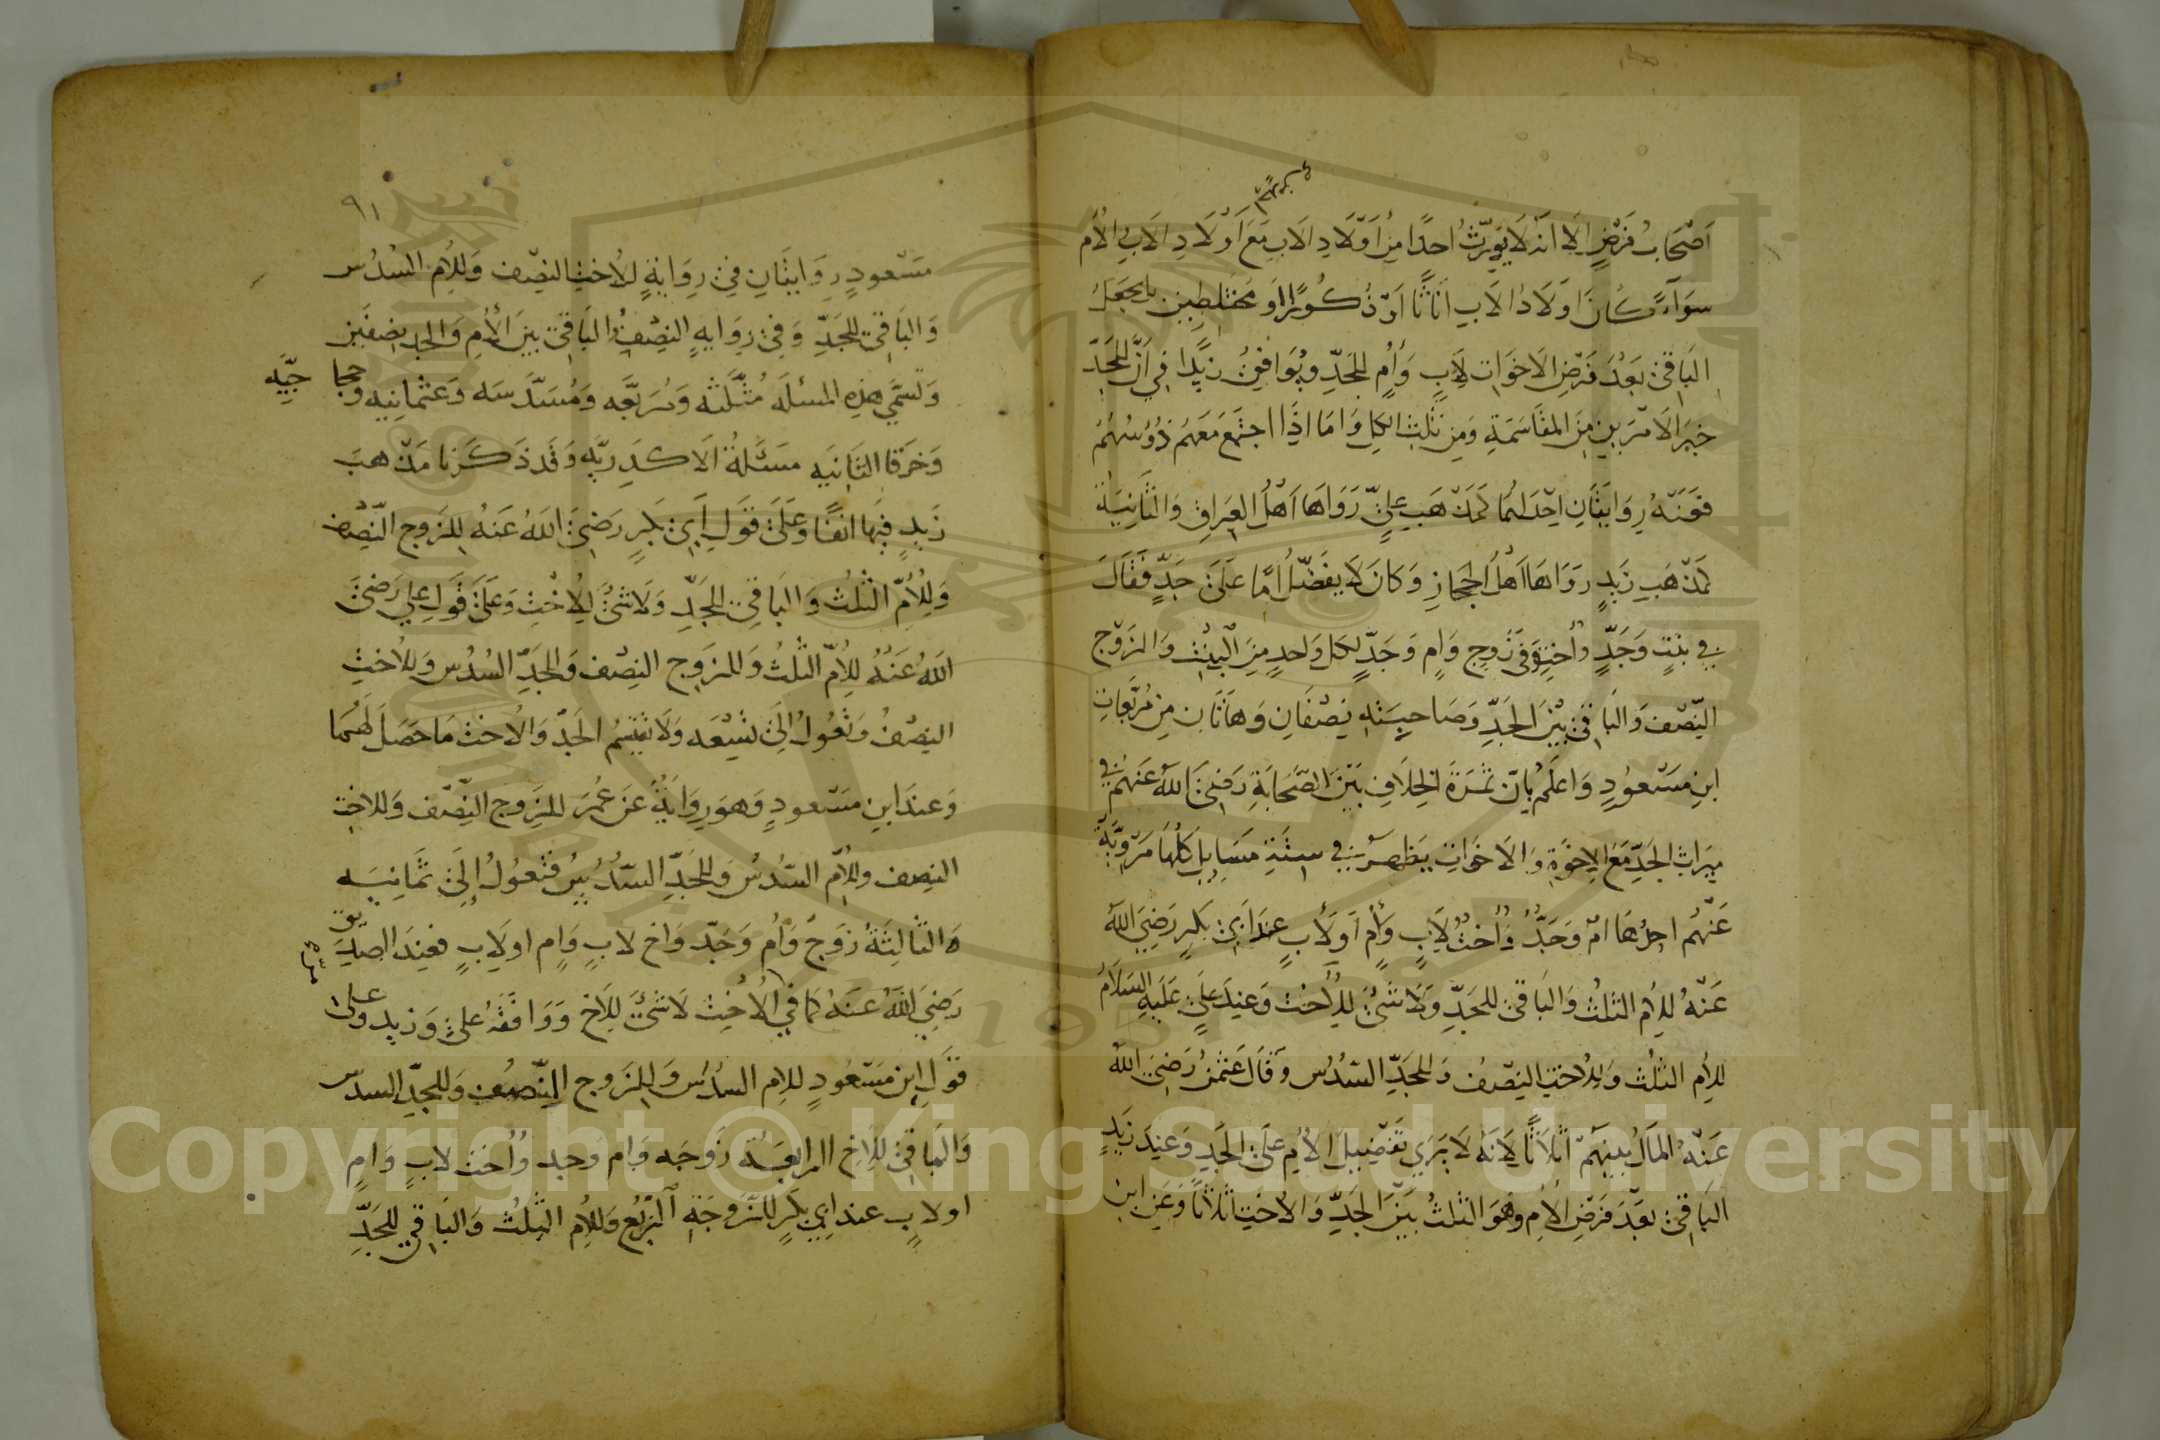 اَصْحَابُ فَرْضٍ اِلَّا اَنَّهُ لَا يُوَرِّثُ اَحَدًا مِنْ اَوْلَادِ الَابِ مَعَ اَوْلَادِ الَابِ وَالْاُم
سَوَآءً كَانَ اَوْلَادُ الَابِ اَنَاثًا اَوْ ذُكُورًا اَوْ مُخْتَلِطِينَ بل يَجْعَلُ
البَاقِيَ بَعْدَ فَرْضِ الَاخَوَاتِ لِاَبٍ وَاُمٍ لِلجَدِّ وَيُوَافِقُ زَيْدًا فِي اَنَّ لِلجَدِّ
خَيْرَ الَامْرَيْنِ مِنَ المقَاسَمَةِ وَمِنْ ثُلُثِ الكِلِ وَامَا اذَا اجتَمَعَ مَعَهُمْ ذُوُ سَهْمٍ
فَعَنْهُ رِوَايَتَانِ اِحْدَاهُمَا كَمَذْهَبِ عَلِيٍّ رَوَاهَا اَهْلُ العِرَاقِ وَالثَّانِيَةُ
كَمَذْهَبِ زَيْدٍ رَوَاهَا اَهْلُ الحِجَازِ وَكَانَ لَا يُفَضِّلُ اُمًّا عَلَى جَدٍّ فَقَالَ
فِي بِنْتٍ وَجَدٍّ وَاُخْتٍ وَفِي زَوْجٍ وَاُمٍ وَجَدٍّ لِكلِ وَاحدٍ مِنَ الْبِنْتِ وَالزَوْجِ
النِّصْف وَالبَاقِيَ بَيْنَ الجَدِّ وَصَاحِبَتِهِ نِصْفَانِ وَهَاتَانِ مِنْ مُرَبَّعَاتِ
ابنِ مَسْعُودٍ وَاعلَمْ بِاَنَّ ثَمَرَةَ الخِلَافِ بَيْنَ الصَّحَابَةِ رَضِيَ اللهُ عَنهُمْ فِي
مِيرَاثِ الجَدِّ مَعَ الاِخْوَةِ وَالَاخَوَاتِ يَظْهَرُ فِي سِتَّةِ مَسَايِلَ كُلُّهَا مَرْوِيَّةٌ
عَنْهُم احدُهَا امٌ وَجَدٌّ وَاُخْتٌ لِاَبٍ وَاُمٍ اَوْ لِاَبٍ عِندَ اَبِي بَكْرٍ رَضِيَ اللهُ
عَنْهُ لِلاُم الثلثُ وَالبَاقِي لِلجَدِّ وَلَا شَئَ لِلْاُخْت وَعِندَ عَلِيٍ عَلَيهِ السَلَامُ
لِلاُم الثلُث وَلِلْاُختِ النِصْفُ وَلِلجَدِّ السُدُسُ وَقَالَ عُثْمٰنُ رَضِيَ اللهُ
عَنْهُ المَالُ بَينَهُمْ اثْلَاثًا لِاَنَهُ لَا يَرَي تَفْضِيلَ الاُمِ عَلَى الجَدِ وَعِندَ زَيْدٍ
البَاقِي بَعْدَ فَرْضِ الاُمِ وَهُوَ الثلثُ بَيْنَ الجَدِّ وَالاُخْتِ اثلَاثًا وَعَنِ ابنِ
٩١
مَسْعودٍ رِوَايتَانِ فِي رِوَايَةٍ لِلاُختِ النِصْف وَلِلاُمِ السُدُسُ
وَالبَاقِي لِلجَدِّ وَفِي رِوَايهٍ النِصْفُ وَالبَاقِي بَينَ الاُمِ وَالجَدِ نِصفَين
وَتُسَمَّي هٰذِهِ المسئلَه مُثَلَّثَه وَمُرَبَّعَه وَمُسَدَّسَه وَعُثْمَانِيه وَحجا
جِيَّه
وَخَرْقَا الثَّانِيَه مَسْئَلَةُ الَاكْدَرِيَّه وَقَد ذَكَرْنَا مَذْهَبَ
زَيدٍ فِيهَا انفًا وَعَلَى قَولِ اَبِي بَكرٍ رَضِيَ اللهُ عَنهُ لِلزَوج النِّصْف
وَلِلْاُمِّ الْثُلثُ وَالبَاقِي لِلجَدِّ وَلَا شَئَ لِلْاُخْتِ وَعَلَى قَولِ عَلِي رَضِيَ
اللهُ عَنْهُ لِلاُمِّ الثلثُ وَللزَوجِ النِصْف وَلِلجَدِّ السُدُس وَلِلْاُختِ
النِصْفُ وَتَعُولُ اِلَى تِسْعَه وَلَا يَقْتَسِمُ الجَدُّ وَالاُختُ مَا حَصَلَ لَهُمَا
وَعندَ ابنِ مَسْعودٍ وَهوَ رِوَايَةٌ عَن عُمَرَ لِلزَوج النِّصْف وَللاخت
النِصف وللاُمِّ السُدُسُ وَلِلجَدِّ السُّدُسُ فَتَعُولُ اِلَى ثَمَانِيَه
وَالثالثَةُ زَوجٌ وَاُم وَجَدّ وَاخ لابٍ وَاُمٍ اولِابٍ فعِندَ الصِدِّيق
رَضِيَ اللهُ عَنهُ كَمَا فِي الاُخْتِ لَا شَئَ لِلاَخِ وَوَافَقَهُ عَلِيٌ وَزيدٌ وعلى
قَولِ ابنِ مَسْعُودٍ لِلاِم السدُسُ وَلِلزَوج النِّصْف وَلِلجَدِّ السدس
وَالبَاقِي لِلاَخِ الرابعَةُ زَوجَه وَاُم وَجد وَاُخت لابٍ وَاُمٍ
اولابٍ عندَ ابِي بَكرٍ لِلزَوجَةِ الرُبُع وَلِلاُمِ الثلثُ وَالبَاقِي لِلجَدِّ